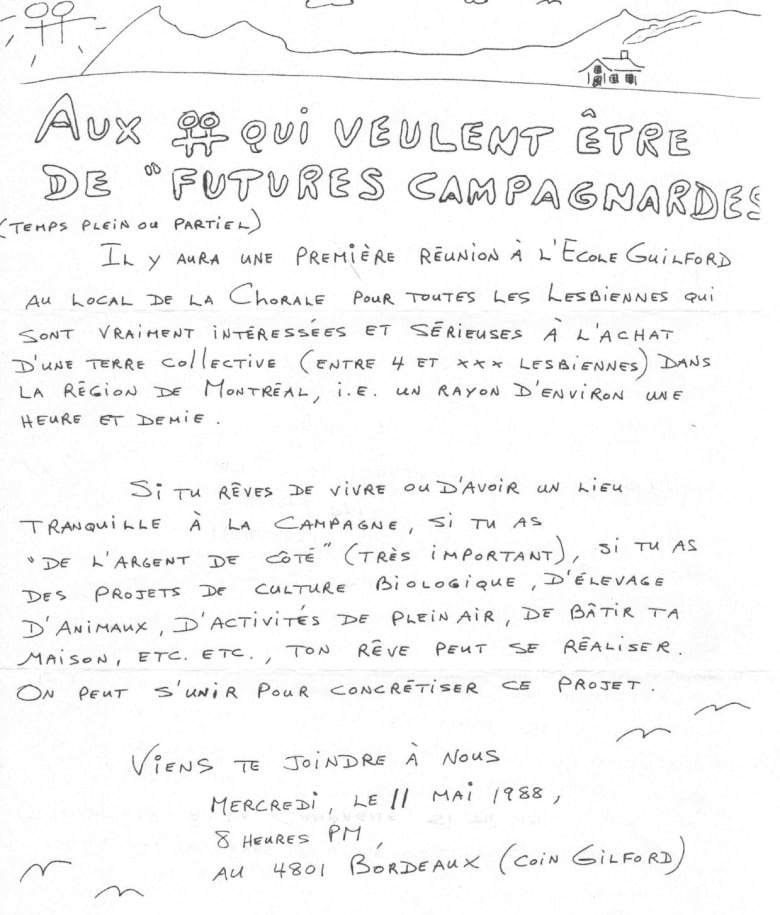 AUX ⚢ QUI VEULENT ÊTRE
DE "FUTURES CAMPAGNARDES
(TEMPS PLEIN OU PARTIEL)
IL Y AURA UNE PREMIÈRE RÉUNION À L'ECOLE GUILFORD
AU LOCAL DE LA CHORALE POUR TOUTES LES LESBIENNES QUI
SONT VRAIMENT INTÉRESSÉES ET SÉRIEUSES À L'ACHAT
D'UNE TERRE COLLECTIVE (ENTRE 4 ET XXX LESBIENNES) DANS
LA RÉGION DE MONTRÉAL, i.E. UN RAYON D'ENVIRON UNE
HEURE ET DEMIE.
SI TU RÊVES DE VIVRE OU D'AVOIR UN LIEU
TRANQUILLE À LA CAMPAGNE, SI TU AS
"DE L'ARGENT DE CÔTÉ" (TRÈS IMPORTANT), SI TU AS
DES PROJETS DE CULTURE BIOLOGIQUE, D'ÉLEVAGE
D'ANIMAUX, D'ACTIVITÉS DE PLEIN AIR, DE BÂTIR TA
MAISON, ETC. ETC., TON RÊVE PEUT SE RÉALISER.
ON PEUT S'UNIR POUR CONCRÉTISER CE PROJET.
VIENS TE JOINDRE À NOUS
MERCREDI, LE 11 MAI 1988,
8 HEURES PM,
AU 4801 BORDEAUX (COIN GILFORD)